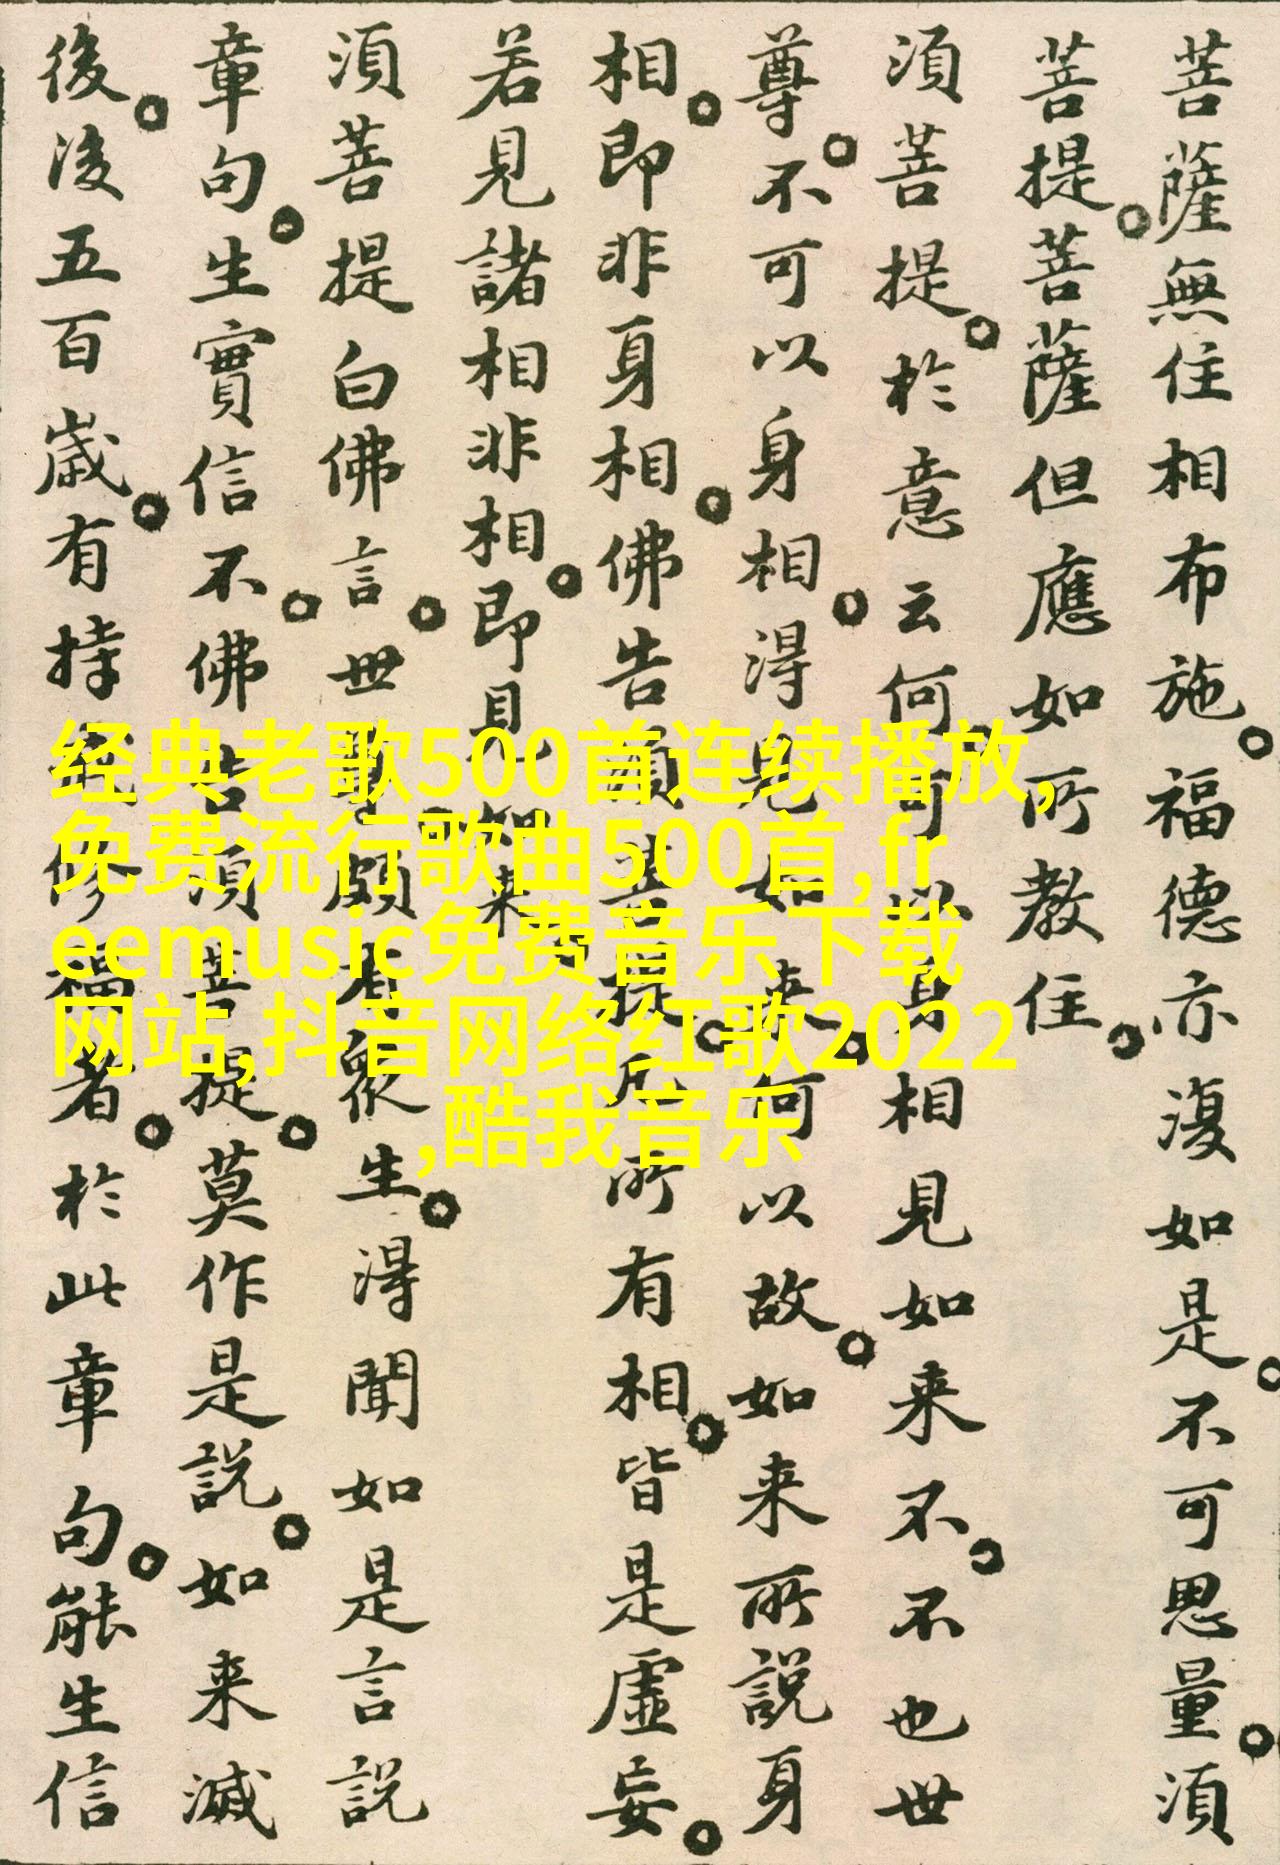 菩薩無住相布施。福德亦復如是。不可思量。須
菩提。菩薩但應如所教住。
須菩提。於意云何。可以身相見如来不。不也世
尊。不可以身相。得見如来。何以故。如来所說身
相。即非身相。佛告須菩提。凡所有相。皆是虛妄。
若見諸相非相。即見如来。
須菩提白佛言。世尊。頗有衆生。得聞如是言說
章句。生實信不。佛告須菩提。莫作是說。如来滅
後。後五百歲。有持戒修福者。於此章句。能生信
经典老歌500首连续播放,
免费流行歌曲500首,fr
eemusic免费音乐下载
网站,抖音网络红歌2022
,酷我音乐